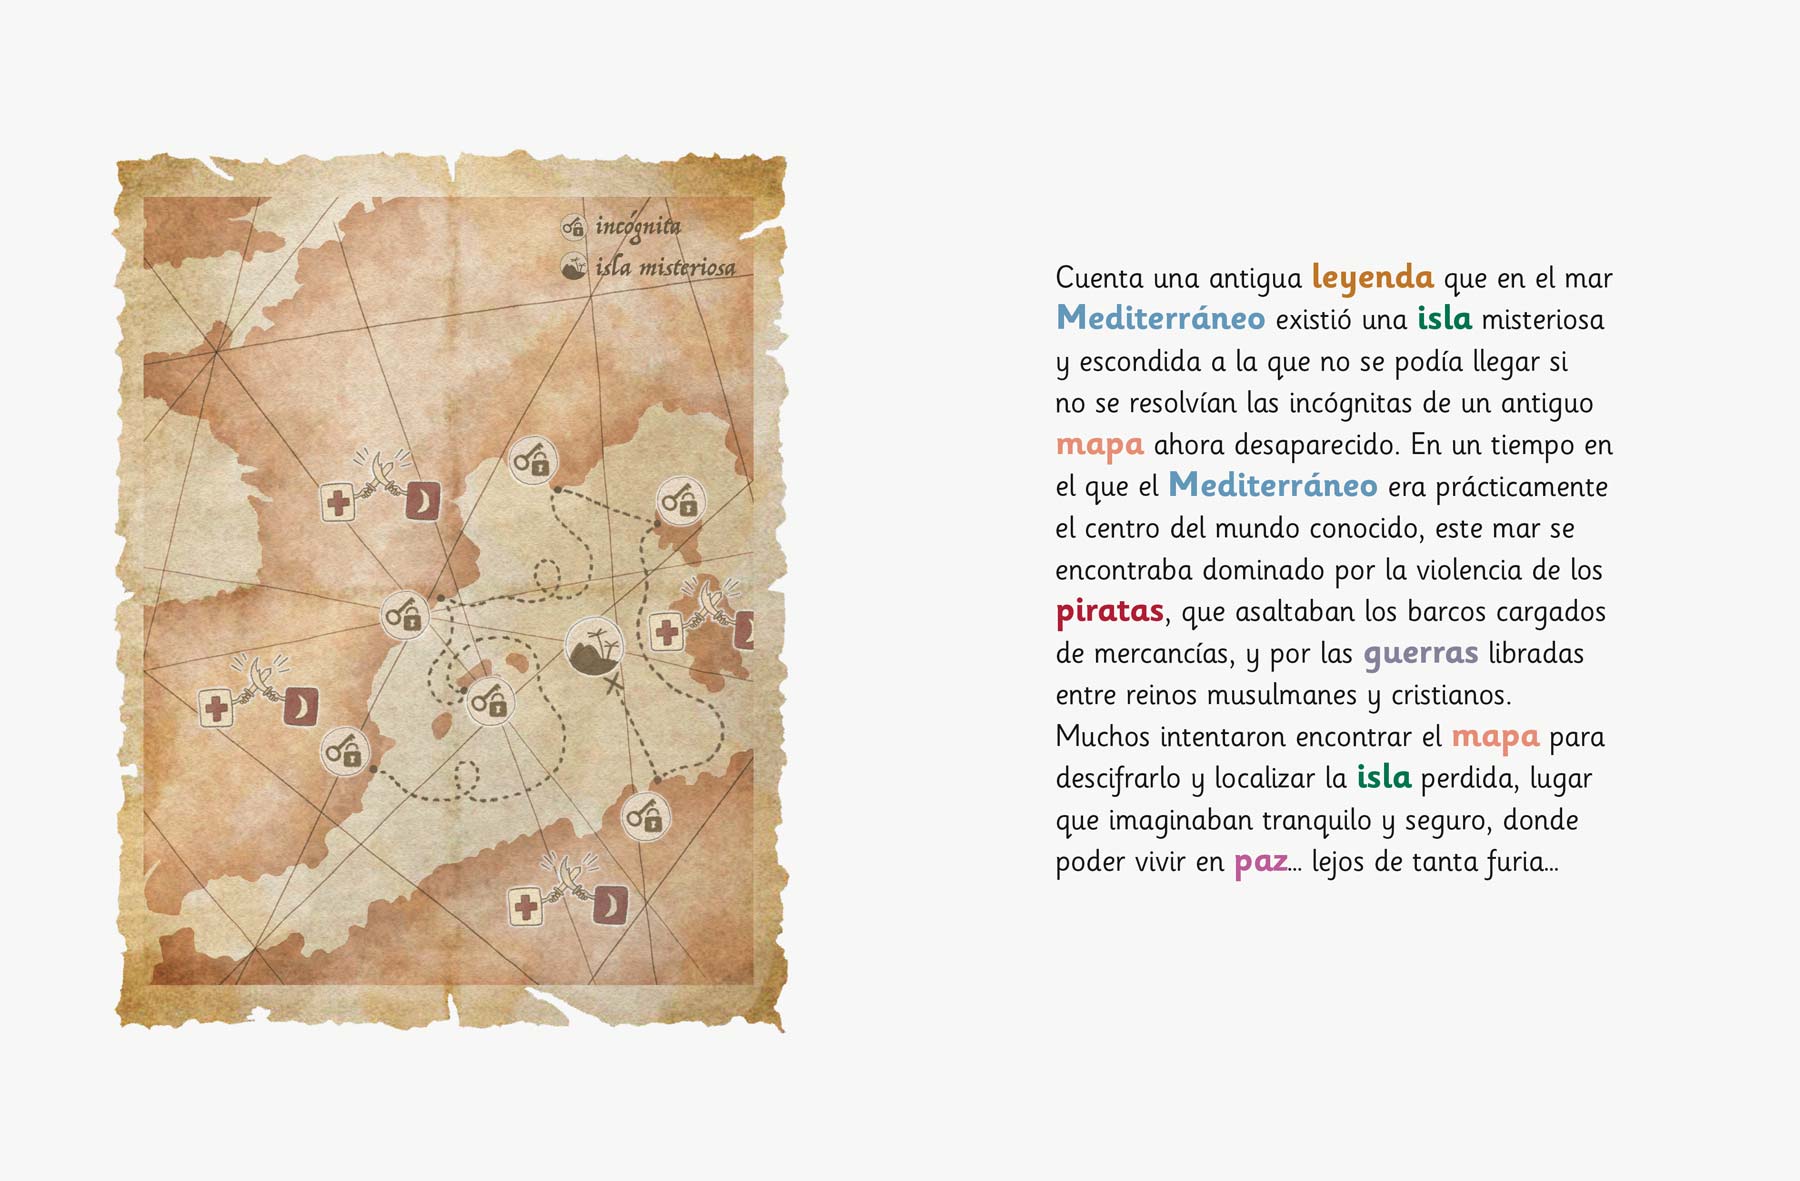 incógnita
isla misteriosa
Cuenta una antigua leyenda que en el mar
Mediterráneo existió una isla misteriosa
y escondida a la que no se podía llegar si
no se resolvían las incógnitas de un antiguo
mapa ahora desaparecido. En un tiempo en
el que el Mediterráneo era prácticamente
el centro del mundo conocido, este mar se
encontraba dominado por la violencia de los
piratas, que asaltaban los barcos cargados
de mercancías, y por las guerras libradas
entre reinos musulmanes y cristianos.
Muchos intentaron encontrar el mapa para
descifrarlo y localizar la isla perdida, lugar
que imaginaban tranquilo y seguro, donde
poder vivir en paz... lejos de tanta furia...